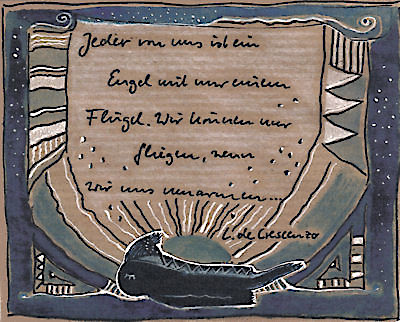 Jeder von uns ist ein
Engel mit nur einem
Flügel. Wir können nur
fliegen, wenn
wir uns umarmen...
L. de Crescenzo